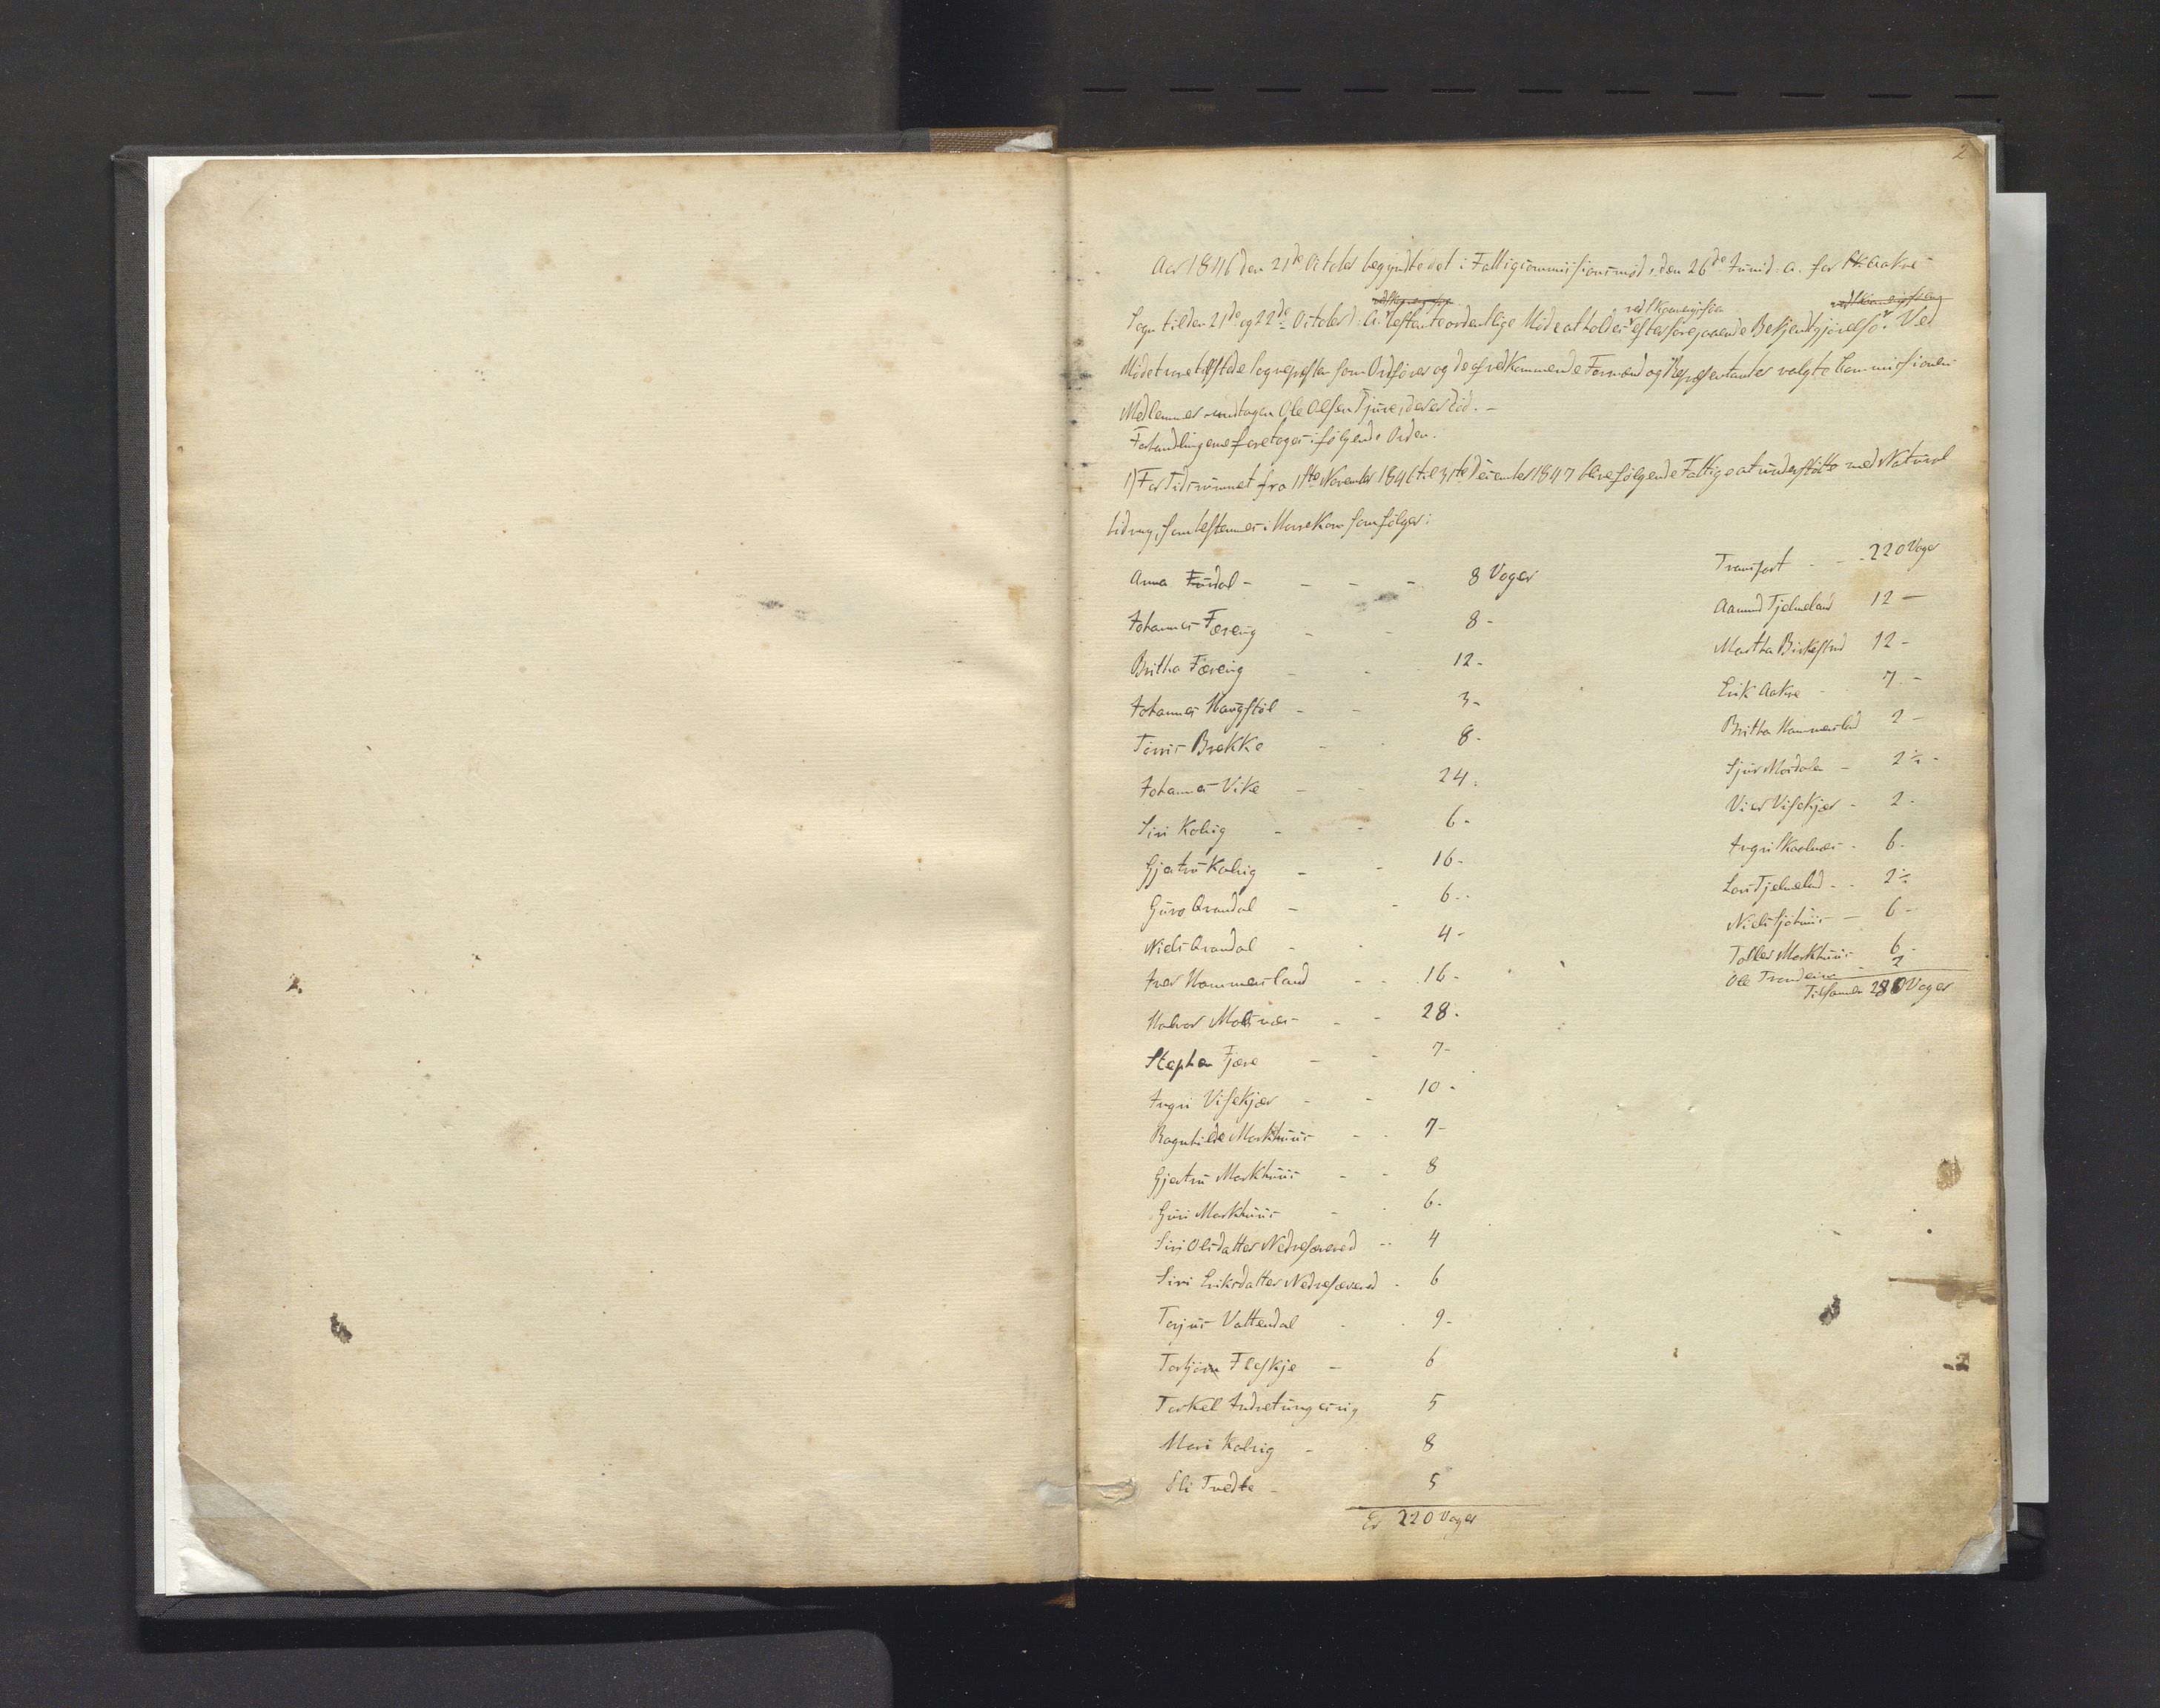 2
Aar 1846 den 21de October begyndte det i Fattigcommissionsmöde den 26de Juni d. A. for Aakre
Sogn til den 21de og 22de October d. A. bestemte ordentlige Möde at holdes ved Skaanevigsöen efter foregaaende Bekjendtgjörelse. Ved
Mödet vare tilstede Sognepresten som Ordförer og de af vedkommende Formænd og Repræsentanter valgte Commissionens
Medlemmer undtagen Ole Olsen Fjære, der er död. -
Forhandlingerne foretoges i fölgende Orden.
1) For Tidsrummet fra 1ste November 1846 til 31te December 1847 blive fölgende Fattige at understötte med Natural
bidrag, som bestemmes i Havre Korn som fölger:
Anna Eüdal - 8 Voger
Johannes Fæveig - 8 -
Britha Fæveig - 12 -
Johannes Haugstöl - 3 -
Törris Brekke - 8 -
Johannes Vike - 24 -
Siri Kalvig - 6 -
Gjertrü Kalvig - 16 -
Güro Qvandal - 6 -
Niels Qvandal - 4 -
Iver Hammersland - 16 -
Halvor Molnes - 28 -
Stephen Fjære - 7 -
Ingri Visekjær - 10 -
Ragnhilde Markhüüs - 7 -
Gjertrü Markhüüs - 8
Güri Markhüüs - 6 -
Siri Olsdatter Nedresævered - 4
Siri Eriksdatter Nedresævered - 6
Torjüs Vattendal - 9 -
Torbjörn Fleskje - 6
Torkel Indretungesvig 5
Mari Kalvig - 8
Eli Tvedte - 5
Er 220 Voger
Transport - 220 Voger
Aamund Tjelmeland 12 -
Martha Birkestrnd 12 -
Erik Aakre - 7 -
Britha Hammerslad 2 -
Sjür Mosdalen - 2½ -
Vier Visekjær - 2 -
Ingri Skaalnæs - 6 -
Lars Tjelmelnd - 2½
Niels Sjöhüüs - 6 -
Tollev Markhüüs - 6 -
Ole Trandeim 2
Tilsamen 280 Voger